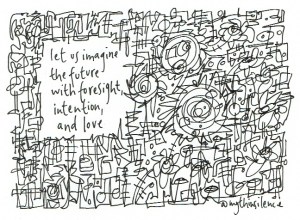 let us imagine
the future
with foresight,
intention,
and love
@mythosilence